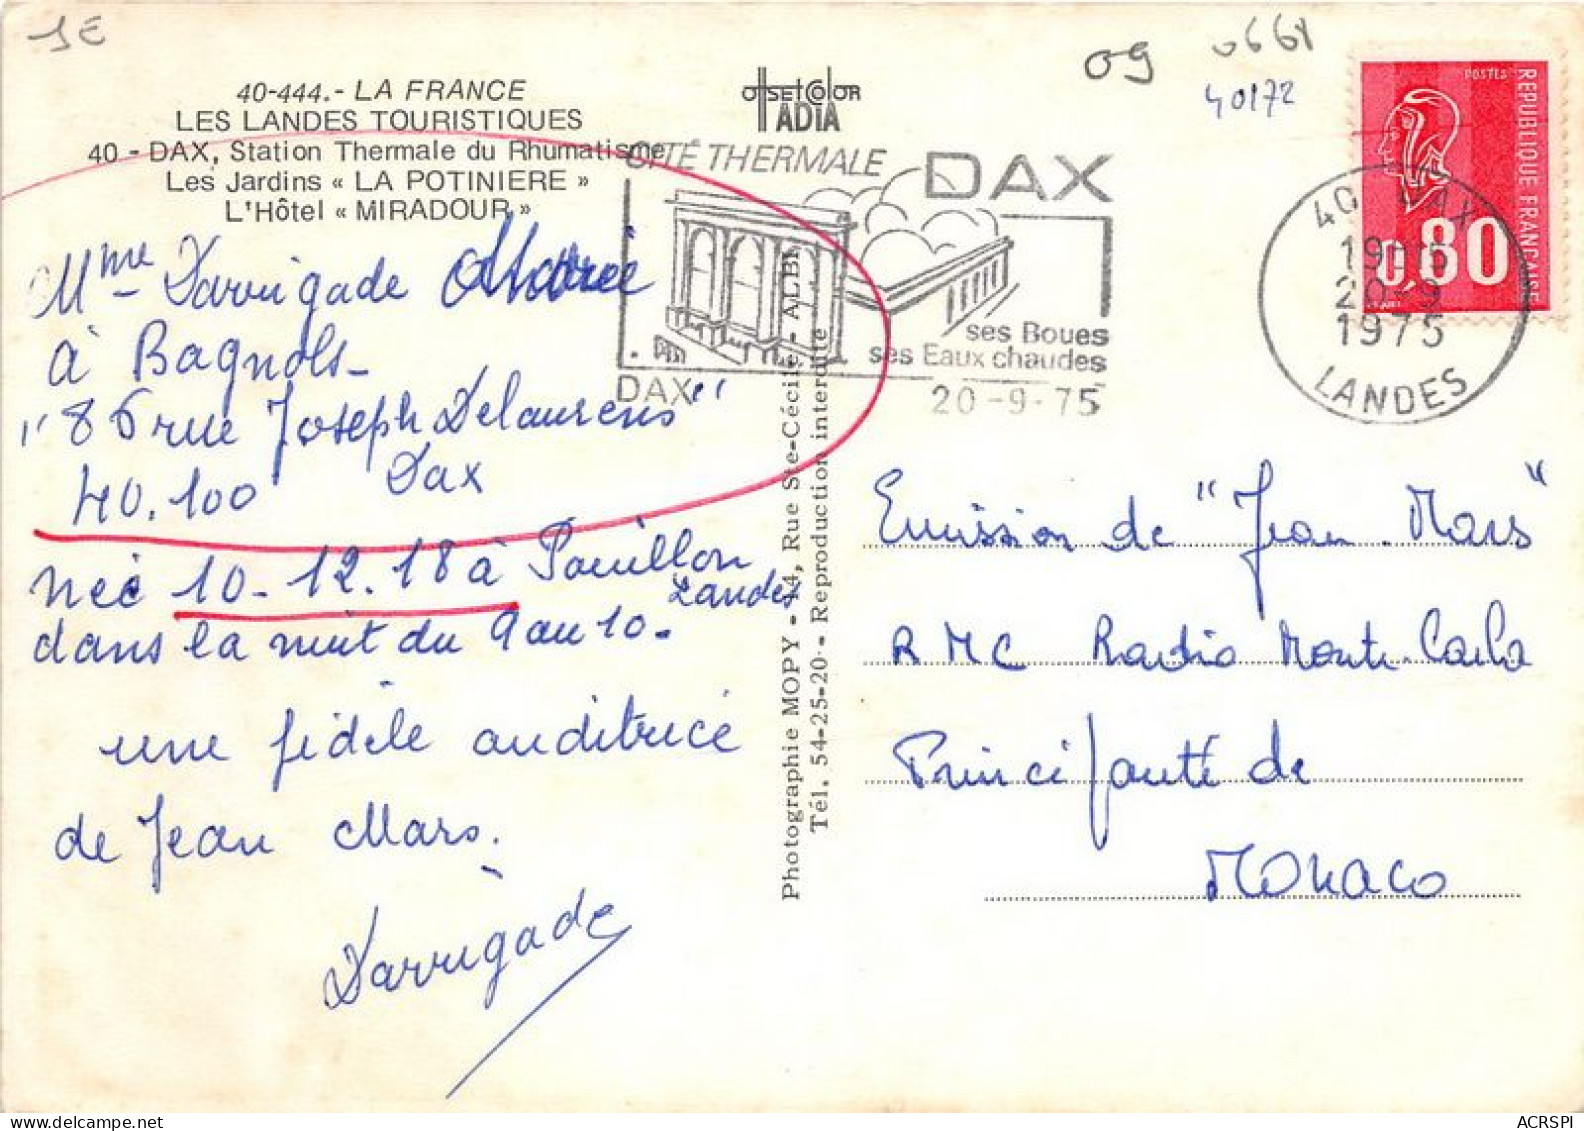 1 €
09
0668
40172
40-444.- LA FRANCE
LES LANDES TOURISTIQUES
40 - DAX, Station Thermale du Rhumatisme
Les Jardins « LA POTINIERE »
L'Hôtel « MIRADOUR »
OffsetColor
ADIA
CITÉ THERMALE DAX
ses Boues
ses Eaux chaudes
DAX
20-9-75
POSTES
REPUBLIQUE FRANCAISE
0,80
40 DAX
19-15
20-9
1975
LANDES
Mme Darrigade Marie
à Bagnols-
"86 rue Joseph Delaurens"
40.100 Dax
née 10-12.18 à Pouillon
Landes
dans la nuit du 9 au 10-
une fidèle auditrice
de Jean Mars.
Darrigade
Photographie MOPY - 44, Rue Ste-Cécile - ALBI
Tél. 54-25-20 - Reproduction interdite
Emission de "Jean-Mars"
RMC Radio Monte-Carlo
Principauté de
Monaco
ACRSPI